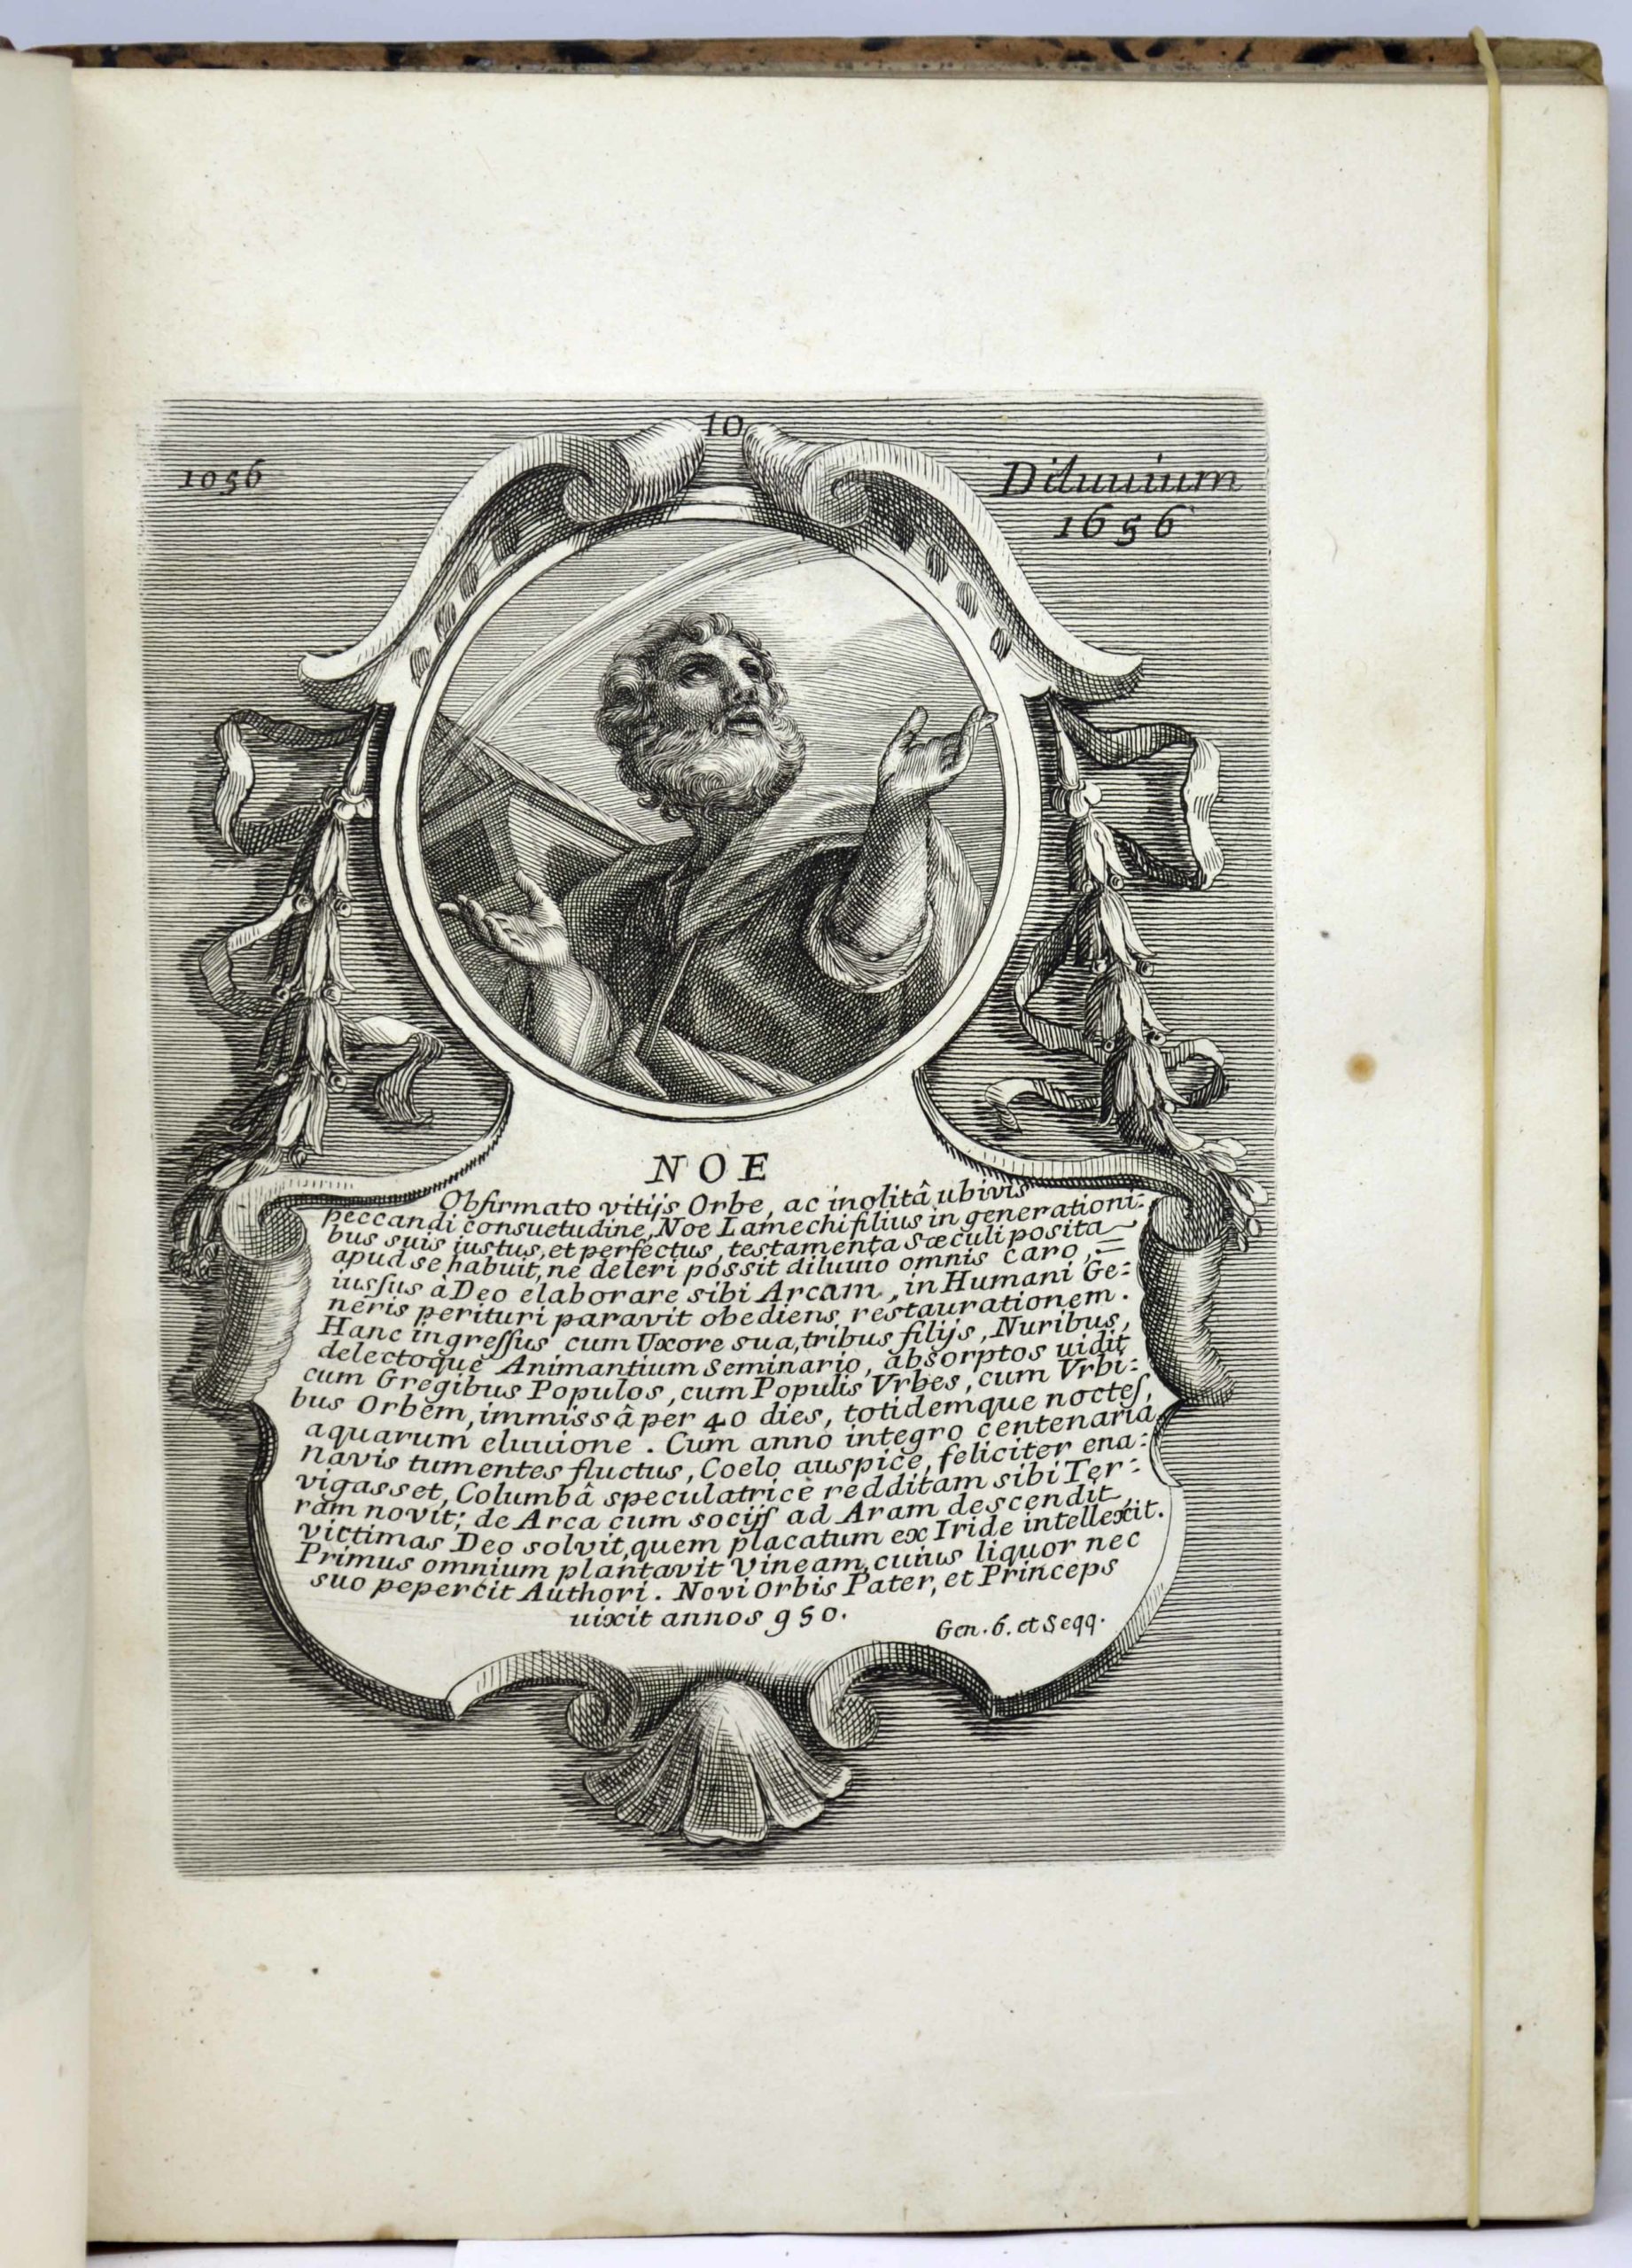 10
1056
Diluuium
1656
NOE
Obfirmato vitijs Orbe, ac inolitâ ubivis
peccandi consuetudine, Noe Lamechi filius in generationi:
bus suis iustus, et perfectus, testamenta Sæculi posita
apud se habuit, ne deleri possit diluuio omnis caro, =
iussus à Deo elaborare sibi Arcam, in Humani Ge:
neris perituri paravit obediens restaurationem.
Hanc ingressus cum Uxore sua, tribus filijs, Nuribus,
delectoque Animantium Seminario, absorptos uidit
cum Gregibus Populos, cum Populis Vrbes, cum Vrbi:
bus Orbem, immissâ per 40 dies, totidemque noctes,
aquarum eluuione. Cum anno integro centenaria
navis tumentes fluctus, Coelo auspice, feliciter ena:
vigasset, Columbâ speculatrice redditam sibi Ter:
ram novit; de Arca cum socijs ad Aram descendit,
victimas Deo solvit, quem placatum ex Iride intellexit.
Primus omnium plantavit Vineam, cuius liquor nec
suo pepercit Authori. Novi Orbis Pater, et Princeps
uixit annos 950.
Gen. 6. et Seqq.